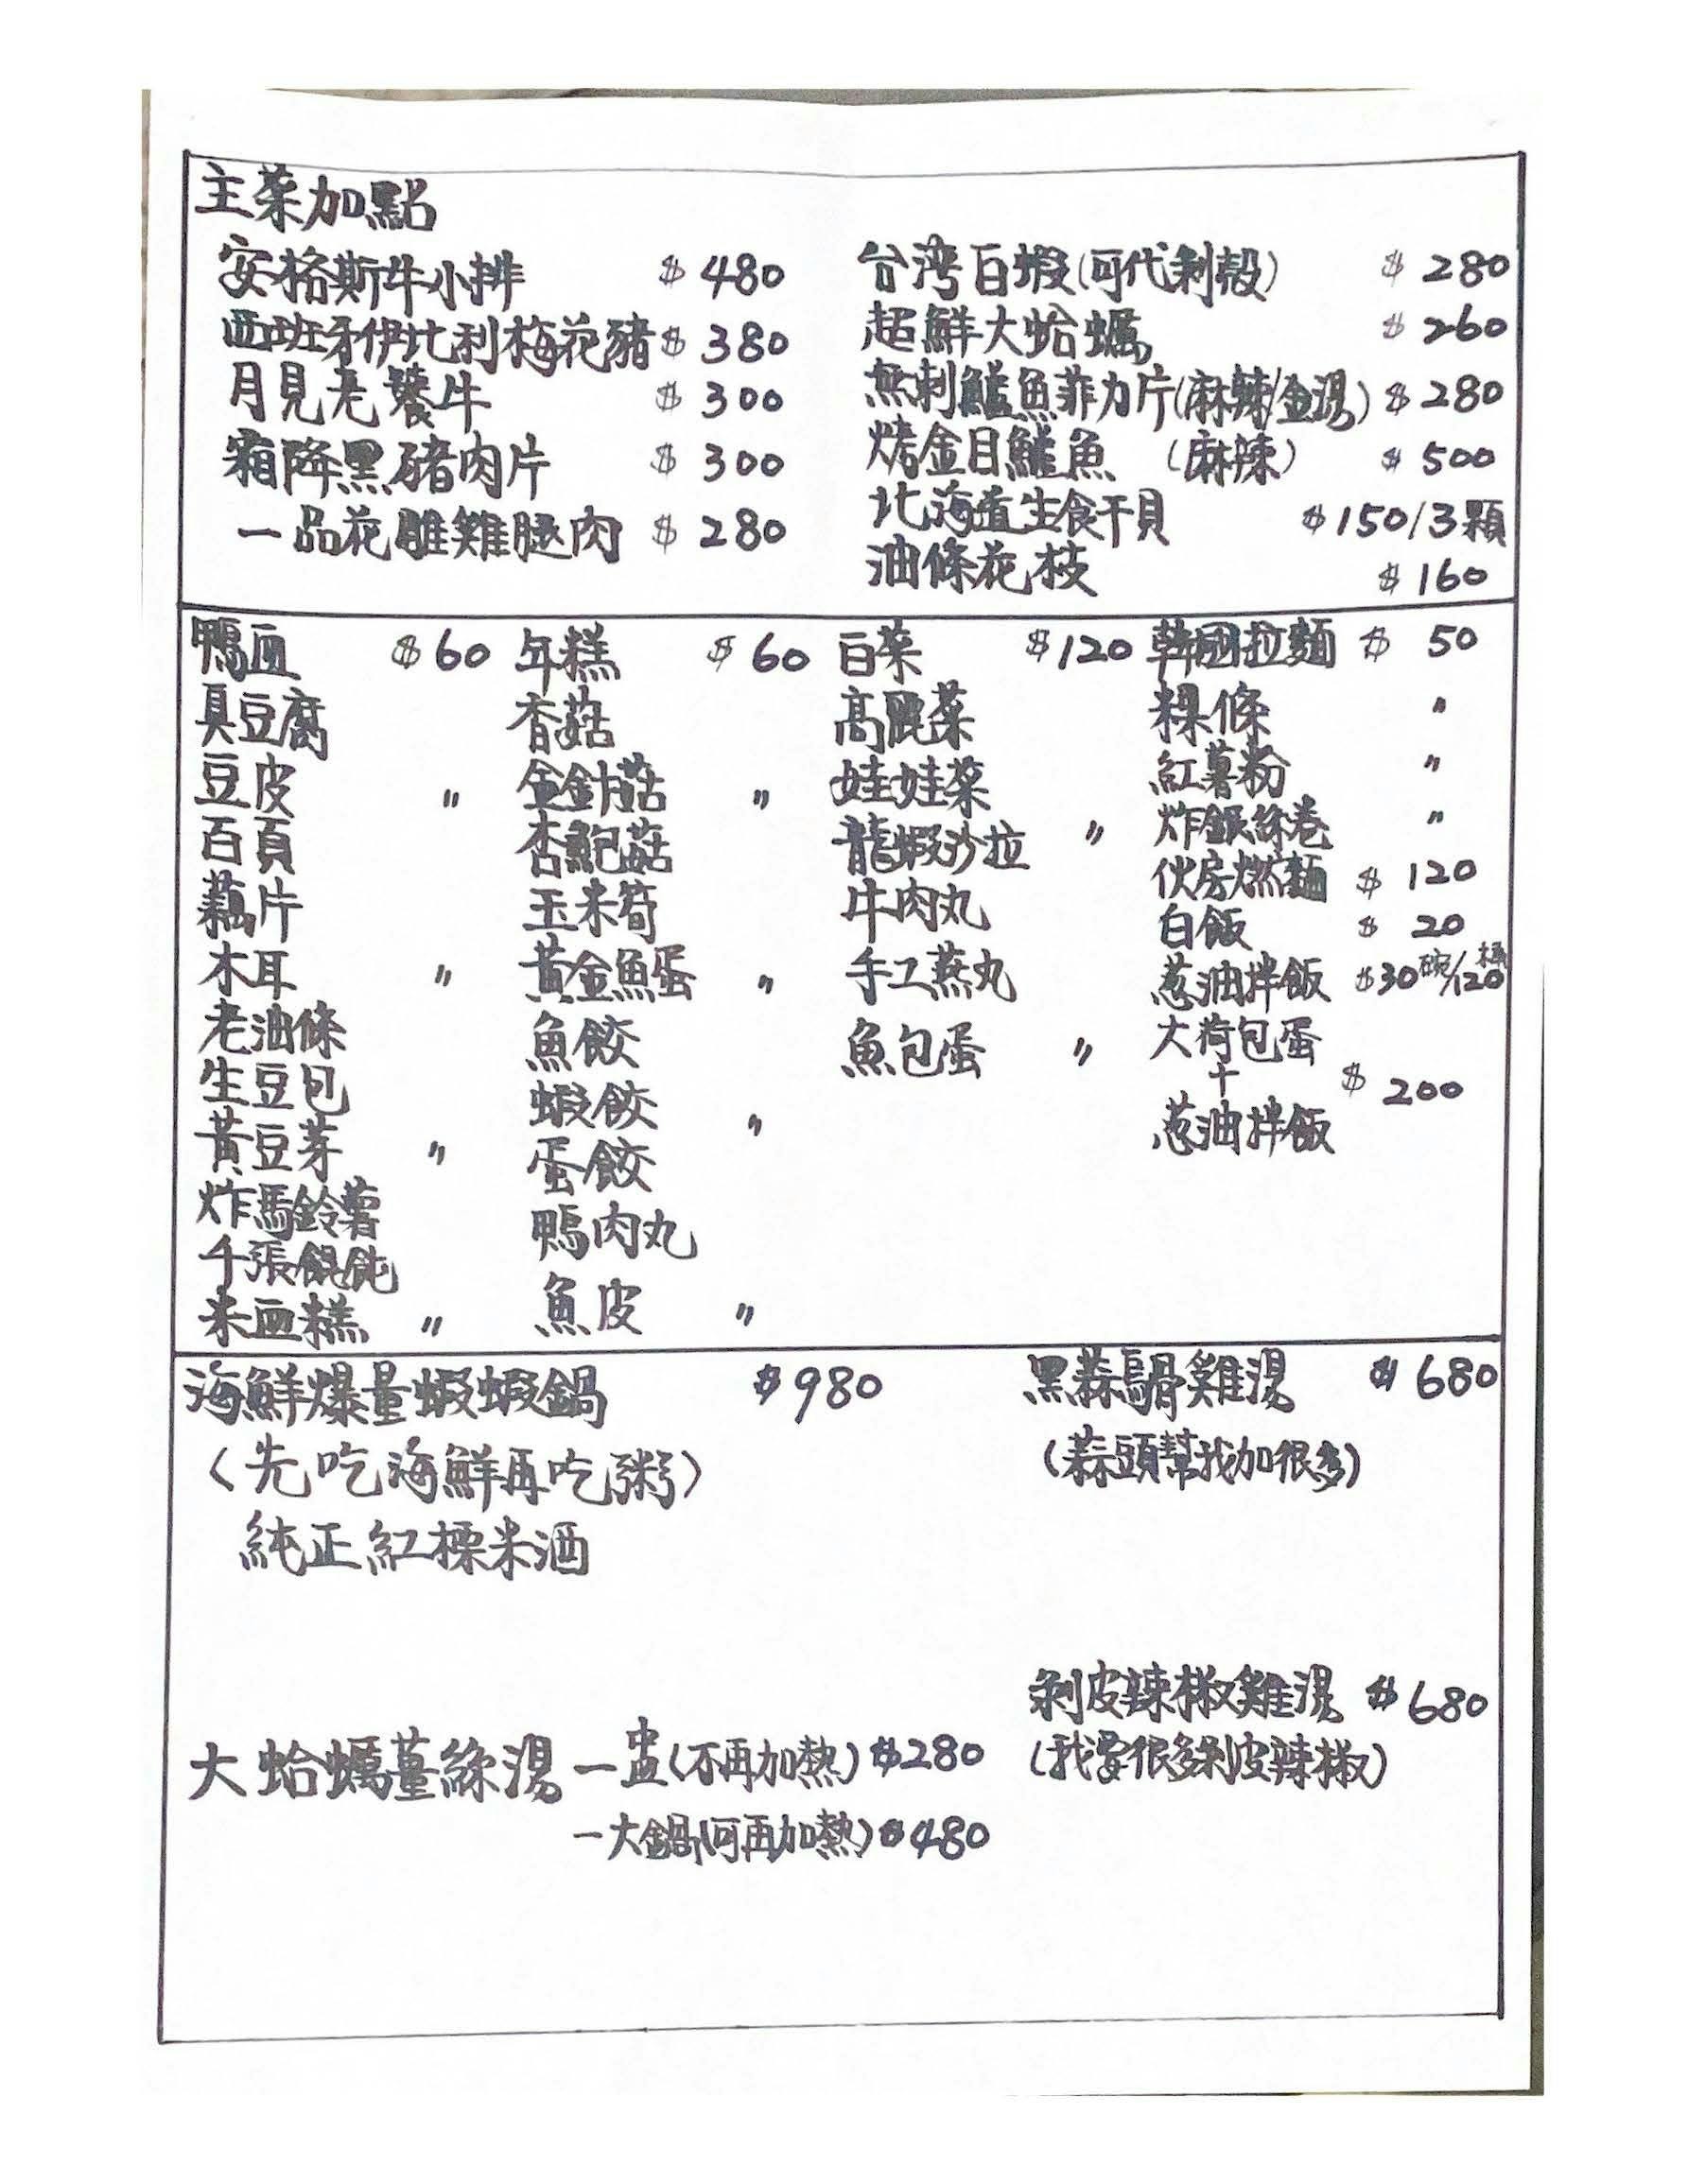 主菜加點
安格斯牛小排 $480
西班牙伊比利梅花豬 $380
月見老饕牛 $300
霜降黑豬肉片 $300
一品花雕雞腿肉 $280
台湾白蝦(可代剝殼) $280
超鮮大蛤蠣 $260
無刺鱸魚菲力片(麻辣/金湯) $280
烤金目鱸魚 (麻辣) $500
北海道生食干貝 $150/3顆
油條花枝 $160
鴨血 $60
臭豆腐
豆皮 〃
百頁
藕片
木耳 〃
老油條
生豆包
黃豆芽 〃
炸馬鈴薯
千張餛飩
米血糕 〃
年糕 $60
香菇
金針菇 〃
杏鮑菇
玉米筍
黃金魚蛋 〃
魚餃
蝦餃 〃
蛋餃
鴨肉丸
魚皮 〃
白菜 $120
高麗菜
娃娃菜
龍蝦沙拉 〃
牛肉丸
手工燕丸
魚包蛋 〃
韓國拉麵 $50
粿條 〃
紅薯粉 〃
炸銀絲卷 〃
伙房燃麵 $120
白飯 $20
蔥油拌飯 $30碗/120桶
大荷包蛋
+ $200
蔥油拌飯
海鮮爆量蝦蝦鍋 $980
(先吃海鮮再吃粥)
純正紅標米酒
大蛤蠣薑絲湯 一盅(不再加熱) $280
一大鍋(可再加熱) $480
黑蒜烏骨雞湯 $680
(蒜頭幫我加很多)
剝皮辣椒雞湯 $680
(我要很多剝皮辣椒)